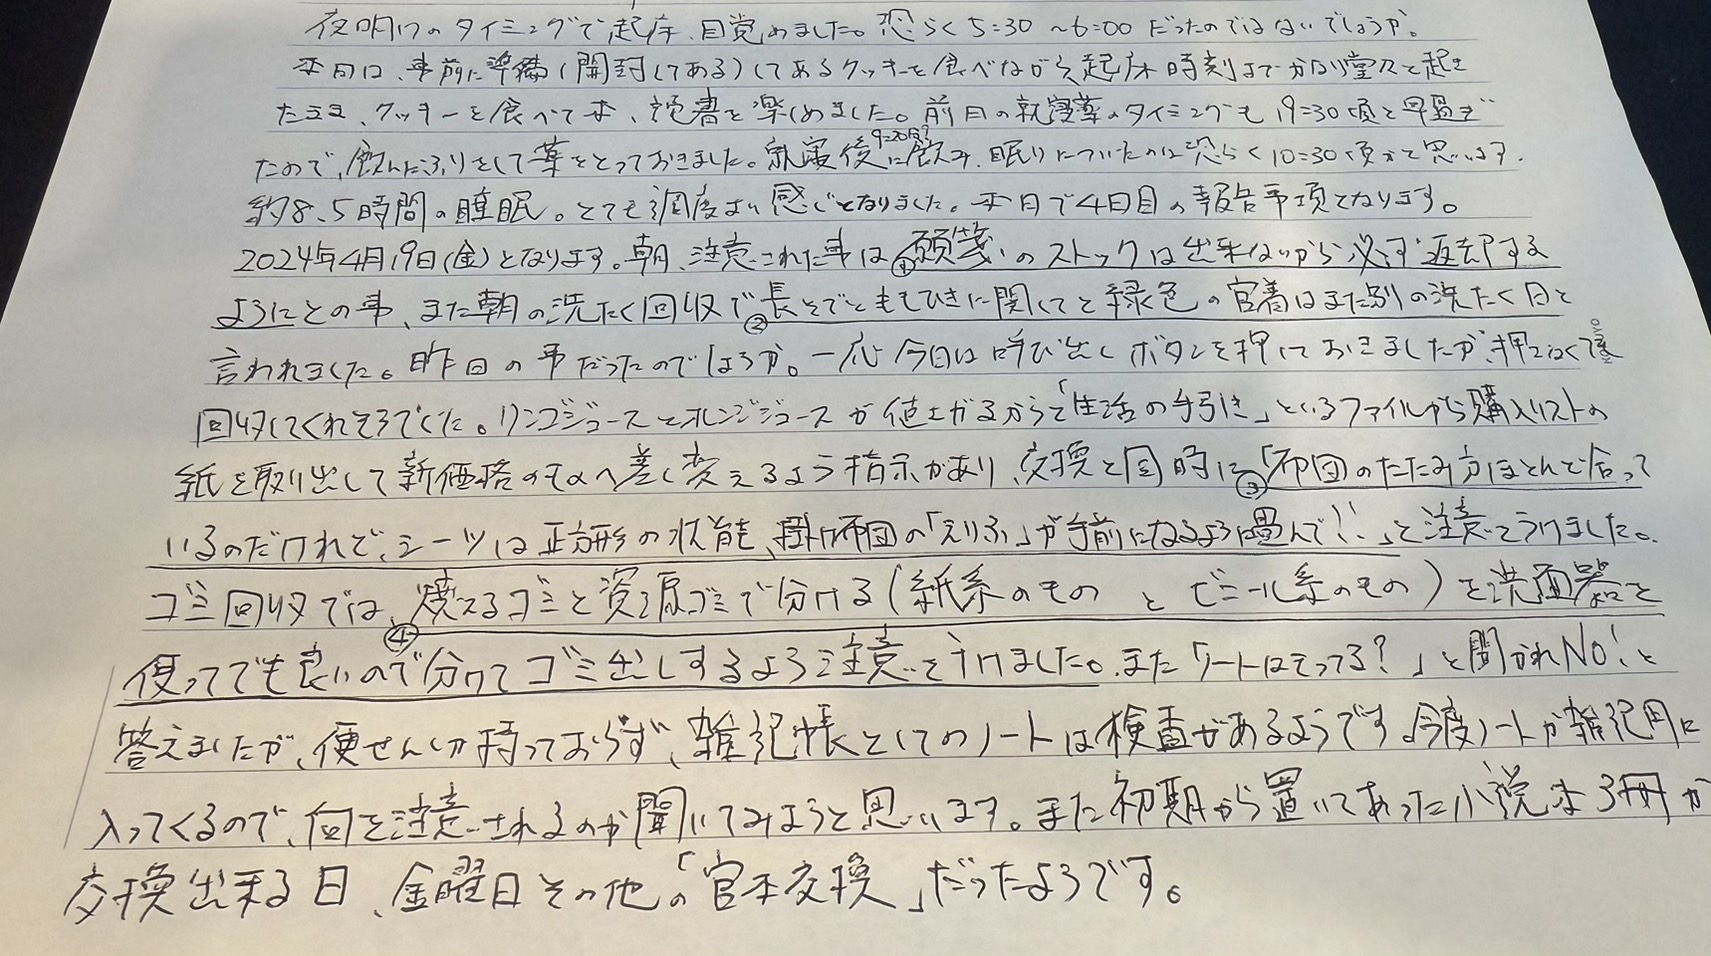 夜明けのタイミングで起床、目覚めました。恐らく5:30〜6:00だったのではないでしょうか。
本日は、事前に準備(開封してある)してあるクッキーを食べながら起床時刻までかなり堂々と起き
たまま、クッキーを食べて本、読書を楽しめました。前日の就寝薬のタイミングも19=30頃と早過ぎ
9=20分?
たので、飲んだふりをして薬をとっておきました。就寝後に飲み、眠りについたのは恐らく10=30頃かと思います。
約8.5時間の睡眠。とても調度よい感じとなりました。本日で4日目の報告事項となります。
2024年4月19日(金)となります。朝、注意された事は①願箋のストックは出来ないから必ず返却する
ようにとの事、また朝の洗たく回収で②長そでともももひきに関してと緑色の官着はまた別の洗たく日と
言われました。昨日の事だったのでしょうか。一応今日は呼び出しボタンを押しておきましたが、押さなくても
回収してくれそうでした。リンゴジュースとオレンジジュースが値上がるからと「生活の手引き」というファイルから購入リストの
紙を取り出して新価格のものへ差し変えるよう指示があり、交換と同時に③「布団のたたみ方ほとんど合って
いるのだけれど、シーツは正方形の状態、掛け布団の「えりふ」が手前になるように畳んで!!」と注意をうけました。
ゴミ回収では、④燃えるゴミと資源ゴミで分ける(紙系のもの とビニール系のもの)を洗面器を
使ってでも良いので分けてゴミ出しするよう注意をうけました。また「ノートはもってる?」と聞かれNo!と
答えましたが、便せんしか持っておらず、雑記帳としてのノートは検査があるようです。今度ノートが雑記用に
入ってくるので、何を注意されるのか聞いてみようと思います。また初期から置いてあった小説本3冊が
交換出来る日、金曜日その他の「官本交換」だったようです。